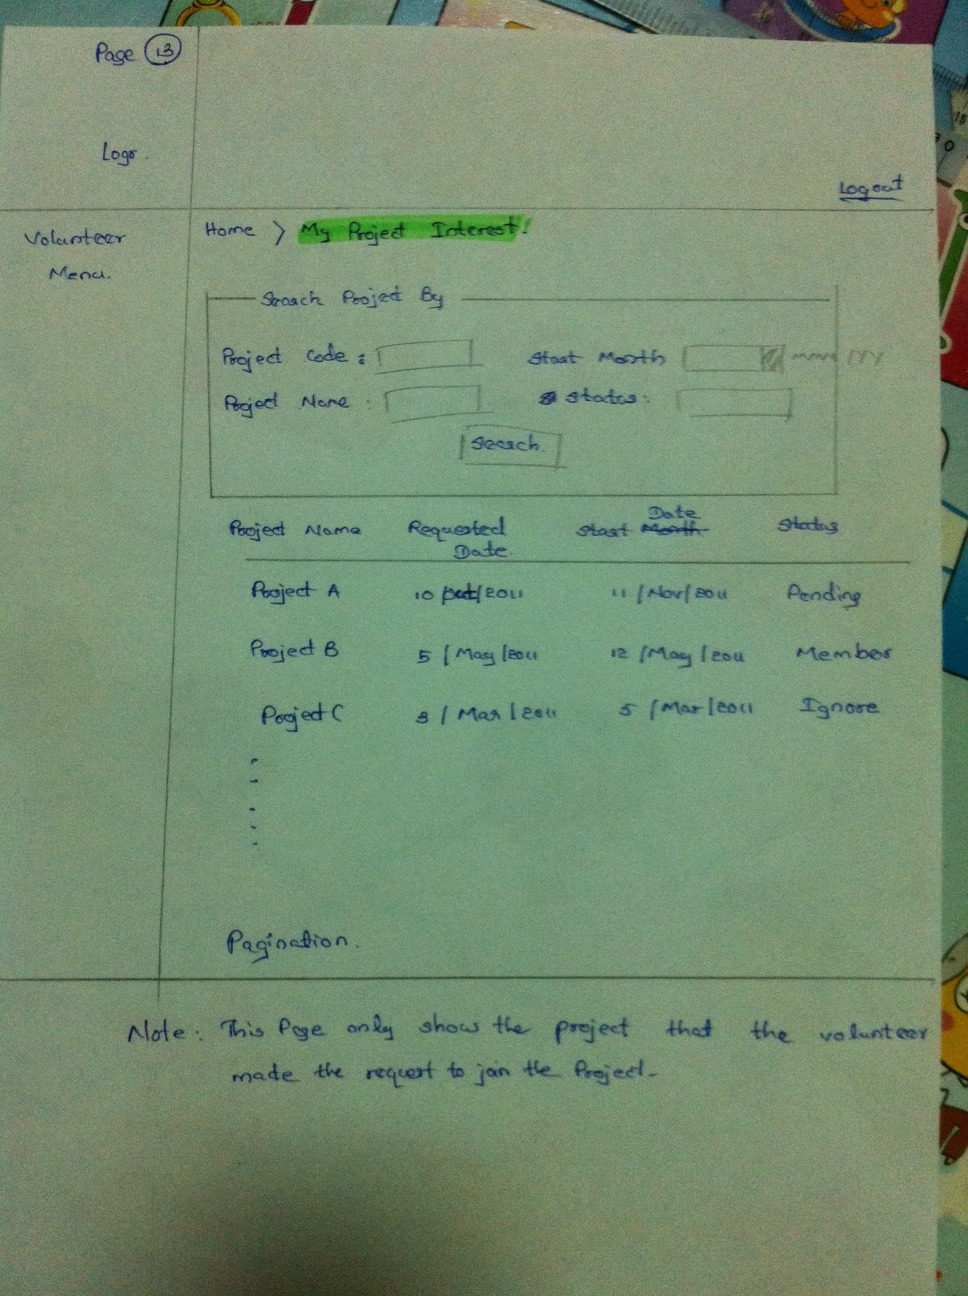 Page 13
Logo.
Logout
Volunteer
Menu.
Home > My Project Interest.
Search Project By
Project Code : Start Month mmm / YY
Project Name : Status :
Search
Project Name Requested Date. Start Month Date Status
Project A 10 /Oct/2011 11 /Nov/2011 Pending
Project B 5 / May /2011 12 /May /2011 Member
Project C 3 / Mar / 2011 5 /Mar/2011 Ignore
Pagination.
Note : This Page only show the project that the volunteer
made the request to join the Project.